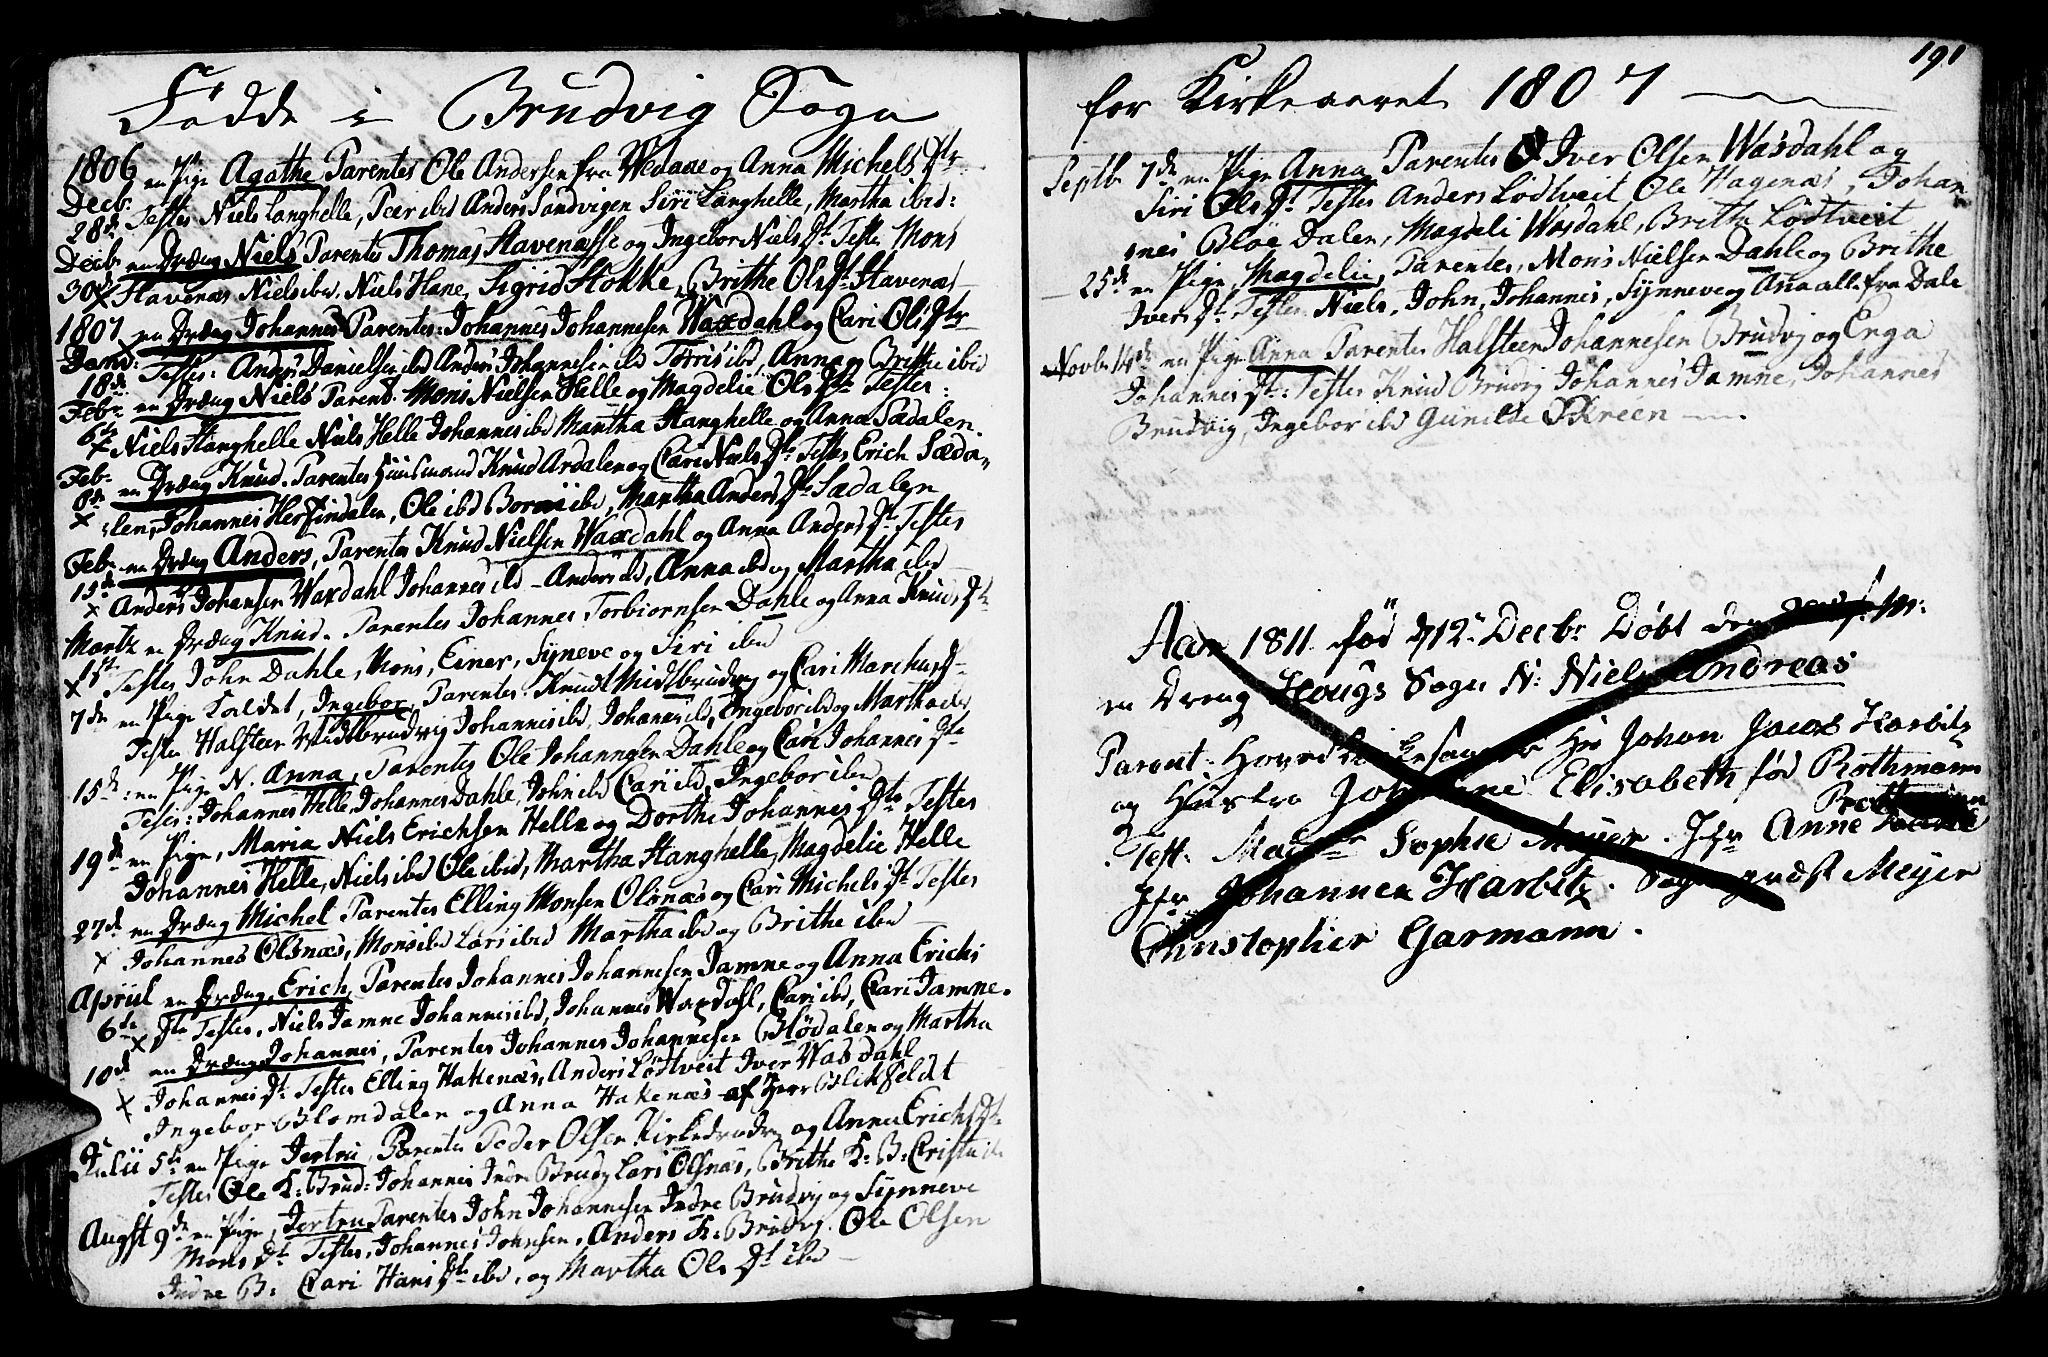 Fødde i Brudvig Sogn
1806 en Pige Agathe Parentes Ole Andersen fra Wedaae og Anna Michels Dtr
Decb.
28de Testes Niels Langhelle, Peer ibid Anders Sandvigen Siri Langhelle, Martha ibid:
Decbr en Dræng Niels Parentes Thomas Stavenæsse og Ingebor Niels Dt. Teste Mons
30te Stavenæs Niels ibid. Niels Hane, Sigrid Stokke, Brithe Ols Dt. Stavenæs
1807 en Dræng Johannes Parentes: Johannes Johannesen Waxdahl og Cari Ols Dtr
18de Testes: Anders Danielsen ibd Anders Johannesen ibd Torris ibd, Anna og Brithe ibid
Febr. en Dræng Niels Parent. Mons Nielsen Helle og Magdelie Ols Dtr Testes:
6te Niels Stanghelle Niels Helle Johannes ibd Martha Stanghelle og Anna Sædalen
Feb. en Dræng Knud. Parentes Huusmand Knud Ardalen og Cari Niels Dt. Testes Erich Sæda-
8de len, Johannes Herfindalen, Ole ibd ibd, Martha Anders Dt Sædalen
Feb. en Dræng Anders, Parentes Knud Nielsen Waxdahl og Anna Anders Dt. Testes
15de Anders Johansen Waxdahl Johannes ibd - Anders ibd, Anna ibd og Martha ibd
Martz en Dræng Knud. Parentes Johannes Torbiornsen Dahle og Anna Knuds Dt.
1st Testes John Dahle, Mons, Einer, Synneve og Siri ibid
7de en Pige Kaldet, Ingebor, Parentes. Knud Midtbrudvig og Cari Dt
Testes Halsteen Midtbrudvig Johannes ibd, Johannes ibd, Ingebor ibd og Martha ibd
15de: en Pige N. Anna, Parentes Ole Johannesen Dahle og Cari Johannes Dtr
Testes: Johannes Helle, Johannes Dahle, John ibd Cari ibd, Ingebor ibid
19de en Pige, Maria Niels Erichsen Helle og Dorthe Johannes Dtr Testes
Johannes Helle, Niels ibd Ole ibid, Martha Stanghelle, Magdelie Helle
27de en Dræng Michel Parentes Elling Monsen Olsnæs og Cari Michels Dt. Testes
Johannes Olsnæs, Mons ibd Lars ibid Martha ibd og Brithe ibid
Apriil en Dræng, Erich, Parentes Johannes Johannesen Jamne og Anna Erichs
6te Dtr Testes, Niels Jamne Johannes ibd, Johannes Waxdahl, Cari ibd, Cari Jamne.
10de en Dræng Johannes, Parentes Johannes Johannesen Blødalen og Martha
Johannes Dt. Testes Elling Hakenæs, Anders Lødtveit Iver Wasdahl
Ingebor Blomdalen og Anna Hakenæs af Herr Blikfeldt
Julii 5te en Pige Jertru, Parentes Peder Olsen Kirkebrudvig og Anna Erichs Dt.
Testes Ole K: Brud: Johannes Indre Brudvig Lars Olsnæs, Brithe K: B: Cristi ibd
Augst 9de en Pige, Jertru Parentes John Johannesen Indre Brudvig og Synneve
Mons Dt. Testes, Johannes Johnsen, Anders K: Brudvig. Ole Olsen
Indre B: Cari Hans Dtr ibd, og Martha Ols Dt ibid
191
for Kirkeaaret 1807
Septb 7de en Pige Anna Parentes Iver Olsen Wasdahl og
Siri Ols Dt. Testes Anders Lødtveit, Ole Hagenæs, Johan
nes Bløe Dalen, Magdeli Wasdahl, Brithe Lødtveit
25de en Pige, Magdelie, Parentes, Mons Nielsen Dahle og Brithe
Ivers Dt. Testes Niels, John, Johannes, Synneve og Ana alle fra Dale
Novbr 14de en Pige Anna Parentes Halsteen Johannesen Brudvig og Enga
Johannes Dt: Testes Knud Brudvig Johannes Jamne, Johannes
Brudvig, Ingebor ibd Gunilde Skreen
Aar 1811 fød d 12te Decbr Døbt den
en Dreng Hougs Sogn N: Niels Andreas
Parent: Hr Johan Jacob Harbitz
og Hustro Johanne Elisabeth fød Rothmann
Test: Sophie Meyer. Jfr Anne
Jfr Johannen Harbitz. Meyer
Christopher Garmann.